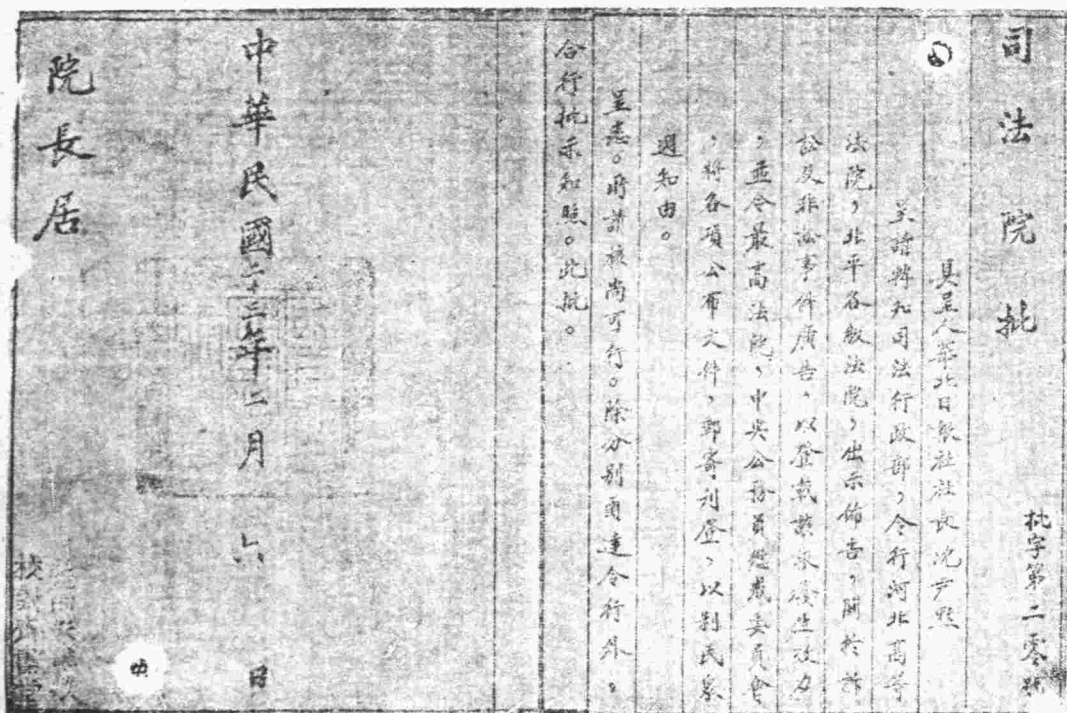 司法院批
批字第二零號
具呈人華北日報社社長沈尹默
呈請轉知司法行政部,令行河北高等
法院,北平各級法院,出示佈告,關於訴
訟及非訟事件廣告,以登載該報發生效力
,並令最高法院,中央公務員懲戒委員會
,將各項公布文件,郵寄刊登,以利民眾
週知由。
呈悉。所請核尚可行。除分別函達令行外。
合行批示知照。此批。
中華民國二十三年二月六日
院長居
校對